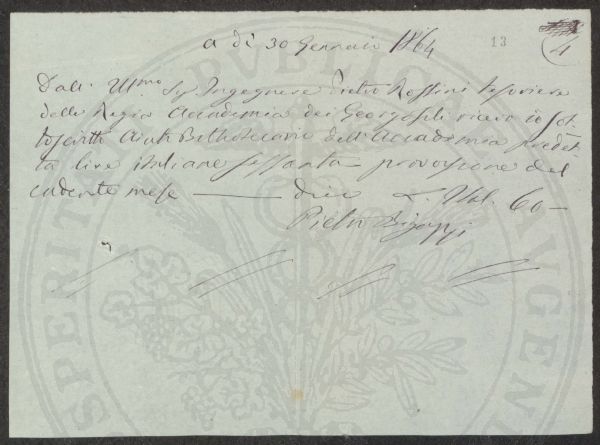 a dì 30 Gennaio 1864
13
4
Dall. Illmo Sig. Ingegnere Pietro Rossini Tesoriere
della Regia Accademia dei Georgofili ricevo io sot
toscritto Aiuto Bibliotecario dell'Accademia predet
ta lire italiane sessanta provvisione del
cadente mese — dico L. Ital. 60 —
Pietro Bigazzi
PUBLICAE
PROSPERITATI
AUGENDAE